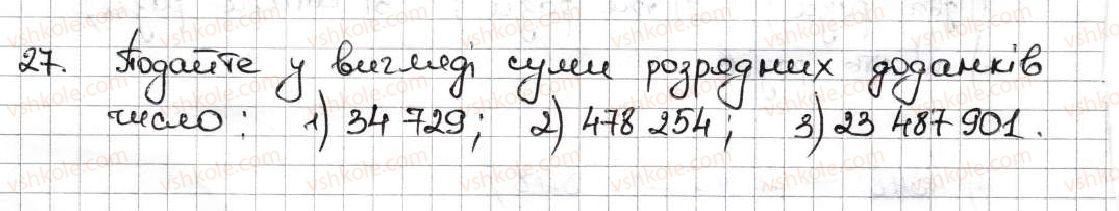 27. Подайте у вигляді суми розрядних доданків
число: 1) 34 729; 2) 478 254; 3) 23 487 901.